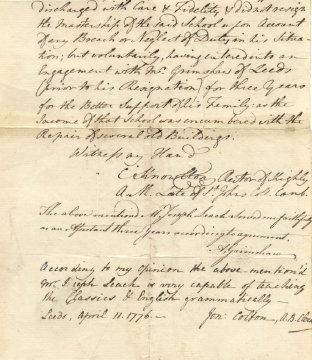 discharged with Care & Fidelity, & did not resign
the Mastership of the said School upon Account
of any Breach or Neglect of Duty in his Situa-
tion; but voluntarily, having entered into an
Engagement with Mr. Grimshaw of Leeds
(prior to his Resignation) for three Years
for the Better Support of his Family; as the
Income of that School was encumbered with the
Repair of several old Buildings.
Witness my Hand
C. Knowlton, Rector of Keighly
A.M. Late of St. Johns Col. Camb.
The above mention'd Mr Joseph Leach served me faithfully
as an Assistant three Years according to agreement.
A Grimshaw
According to my Opinion the above mention'd
Mr. Joseph Leach is very capable of teaching
the Classics & English grammatically—
Leeds, April 11. 1776.— Jon: Colton, A.B.